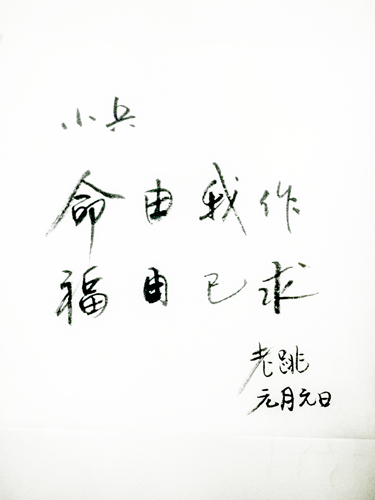 小兵
命由我作
福由己求
老跳
元月元日